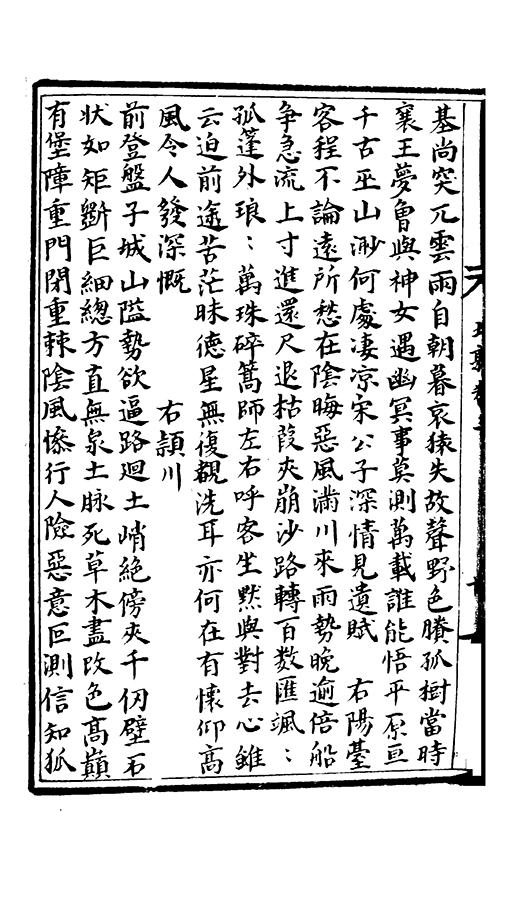 基尚突兀雲雨自朝暮哀猿失故聲野色賸孤樹當時
襄王夢魯與神女遇幽冥事莫測萬載誰能悟平原亘
千古巫山渺何處凄凉宋公子深情見遺賦　右陽臺
客程不論遠所愁在陰晦惡風滿川來雨勢晚逾倍船
争急流上寸進還尺退枯葭夾崩沙路轉百数匯颯：
孤篷外琅：萬珠碎篙師左右呼客坐黙與對去心雖
云迫前途苦茫昧德星無復覩洗耳亦何在有懷仰高
風令人發深慨　　　右頴川
前登盤子城山隘勢欲逼路廻土峭絶傍夾千仞壁石
状如矩斲巨細總方直無泉土脉死草木盡改色高巔
有堡障重門閉重棘陰風慘行人險惡意叵測信知狐